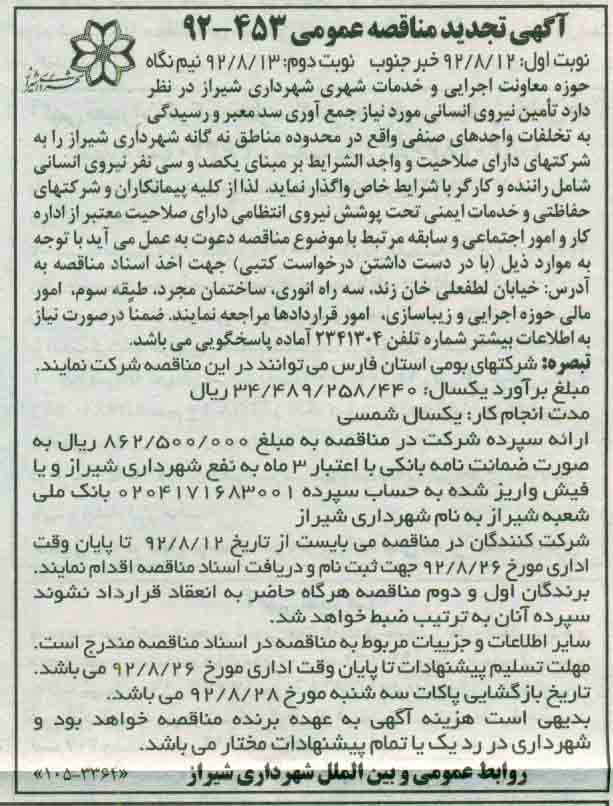 آگهی تجدید مناقصه عمومی ۴۵۳-۹۲
نوبت اول: ۹۲/۸/۱۲ خبر جنوب نوبت دوم: ۹۲/۸/۱۳ نیم نگاه
حوزه معاونت اجرایی و خدمات شهری شهرداری شیراز در نظر
دارد تأمین نیروی انسانی مورد نیاز جمع آوری سد معبر و رسیدگی
به تخلفات واحدهای صنفی واقع در محدوده مناطق نه گانه شهرداری شیراز را به
شرکتهای دارای صلاحیت و واجد الشرایط بر مبنای یکصد و سی نفر نیروی انسانی
شامل راننده و کارگر با شرایط خاص واگذار نماید. لذا از کلیه پیمانکاران و شرکتهای
حفاظتی و خدمات ایمنی تحت پوشش نیروی انتظامی دارای صلاحیت معتبر از اداره
کار و امور اجتماعی و سابقه مرتبط با موضوع مناقصه دعوت به عمل می آید با توجه
به موارد ذیل (با در دست داشتن درخواست کتبی) جهت اخذ اسناد مناقصه به
آدرس: خیابان لطفعلی خان زند، سه راه انوری، ساختمان مجرد، طبقه سوم، امور
مالی حوزه اجرایی و زیباسازی، امور قراردادها مراجعه نمایند. ضمنا درصورت نیاز
به اطلاعات بیشتر شماره تلفن ۲۳۴۱۳۰۴ آماده پاسخگویی می باشد.
تبصره: شرکتهای بومی استان فارس می توانند در این مناقصه شرکت نمایند.
مبلغ برآورد یکسال: ۳۴/۴۸۹/۲۵۸/۴۴۰ ریال
مدت انجام کار: یکسال شمسی
ارائه سپرده شرکت در مناقصه به مبلغ ۸۶۲/۵۰۰/۰۰۰ ریال به
صورت ضمانت نامه بانکی با اعتبار ۳ ماه به نفع شهرداری شیراز و یا
فیش واریز شده به حساب سپرده ۰۲۰۴۱۷۱۶۸۳۰۰۱ بانک ملی
شعبه شیراز به نام شهرداری شیراز
شرکت کنندگان در مناقصه می بایست از تاریخ ۹۲/۸/۱۲ تا پایان وقت
اداری مورخ ۹۲/۸/۲۶ جهت ثبت نام و دریافت اسناد مناقصه اقدام نمایند.
برندگان اول و دوم مناقصه هرگاه حاضر به انعقاد قرارداد نشوند
سپرده آنان به ترتیب ضبط خواهد شد.
سایر اطلاعات و جزییات مربوط به مناقصه در اسناد مناقصه مندرج است.
مهلت تسلیم پیشنهادات تا پایان وقت اداری مورخ ۹۲/۸/۲۶ می باشد.
تاریخ بازگشایی پاکات سه شنبه مورخ ۹۲/۸/۲۸ می باشد.
بدیهی است هزینه آگهی به عهده برنده مناقصه خواهد بود و
شهرداری در رد یک یا تمام پیشنهادات مختار می باشد.
روابط عمومی و بین الملل شهرداری شیراز «۱۰۵-۳۳۶۴»
شهرداری شیراز